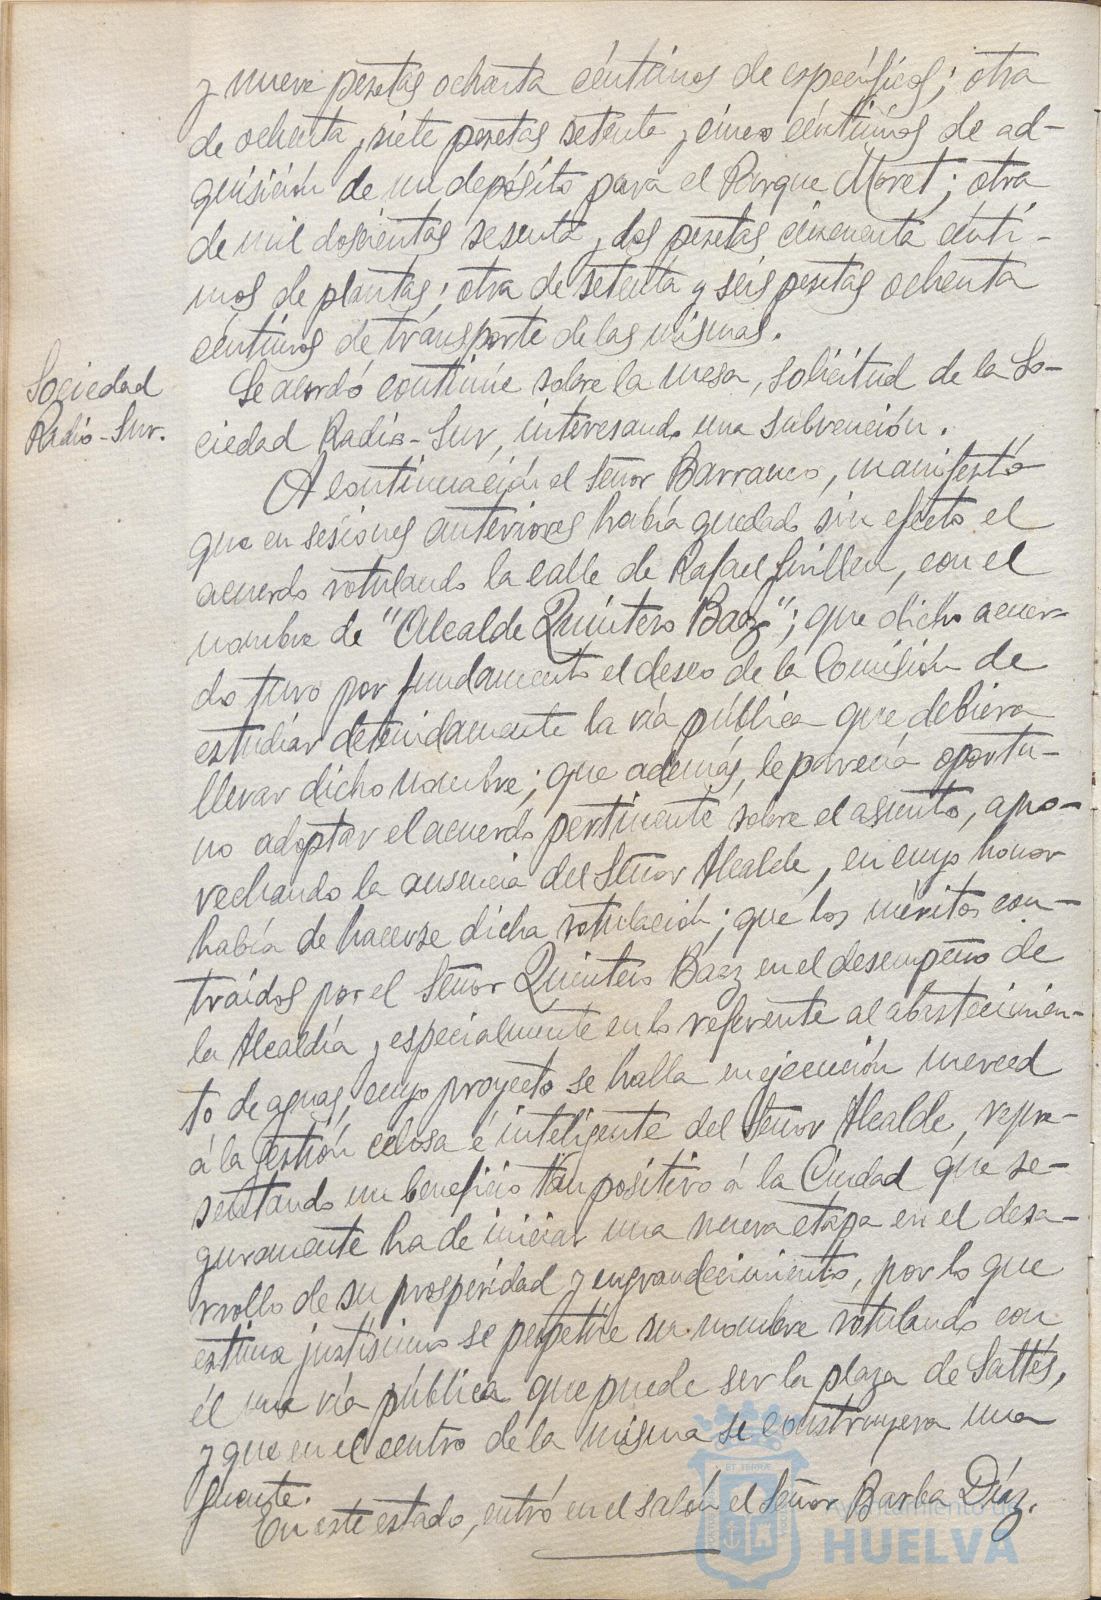 y nueve pesetas ochenta céntimos de específicos; otra
de ochenta y siete pesetas setenta y cinco céntimos de ad-
quisición de un depósito para el Parque Moret; otra
de mil doscientas sesenta y dos pesetas cincuenta cénti-
mos de plantas; otra de setenta y seis pesetas ochenta
céntimos de transporte de las mismas.
Sociedad
Radio-Sur.
Se acordó continúe sobre la mesa, solicitud de la So-
ciedad Radio-Sur, interesando una subvención.
A continuación el Señor Barranco, manifestó
que en sesiones anteriores había quedado sin efecto el
acuerdo rotulando la calle de Rafael Guillen, con el
nombre de "Alcalde Quintero Baez"; que dicho acuer-
do tuvo por fundamento el deseo de la Comisión de
estudiar detenidamente la vía pública que debiera
llevar dicho nombre; que además, le parecía oportu-
no adoptar el acuerdo pertinente sobre el asunto, apro-
vechando la ausencia del Señor Alcalde, en cuyo honor
había de hacerse dicha rotulación; que los méritos con-
traídos por el Señor Quintero Baez en el desempeño de
la Alcaldía y especialmente en lo referente al abastecimien-
to de aguas, cuyo proyecto se halla en ejecución merced
á la gestión celosa é inteligente del Señor Alcalde, repre-
sentando un beneficio tan positivo á la Ciudad que se-
guramente ha de iniciar una nueva etapa en el desa-
rrollo de su prosperidad y engrandecimiento, por lo que
estima justísimo se perpetúe su nombre rotulando con
él una vía pública que puede ser la plaza de Saltés,
y que en el centro de la misma se construyera una
fuente.
En este estado, entró en el salón el Señor Barba Díaz.
Ayuntamiento de
HUELVA